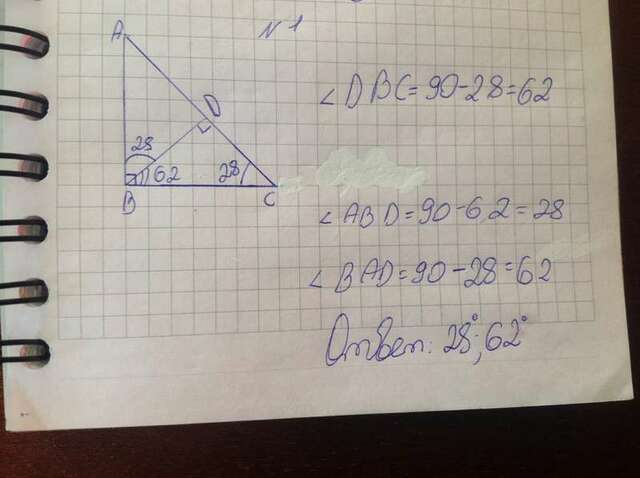 N 1
A
D
28
62
28
B
C
∠DBC=90-28=62
∠ABD=90-62=28
∠BAD=90-28=62
Ответ: 28°; 62°